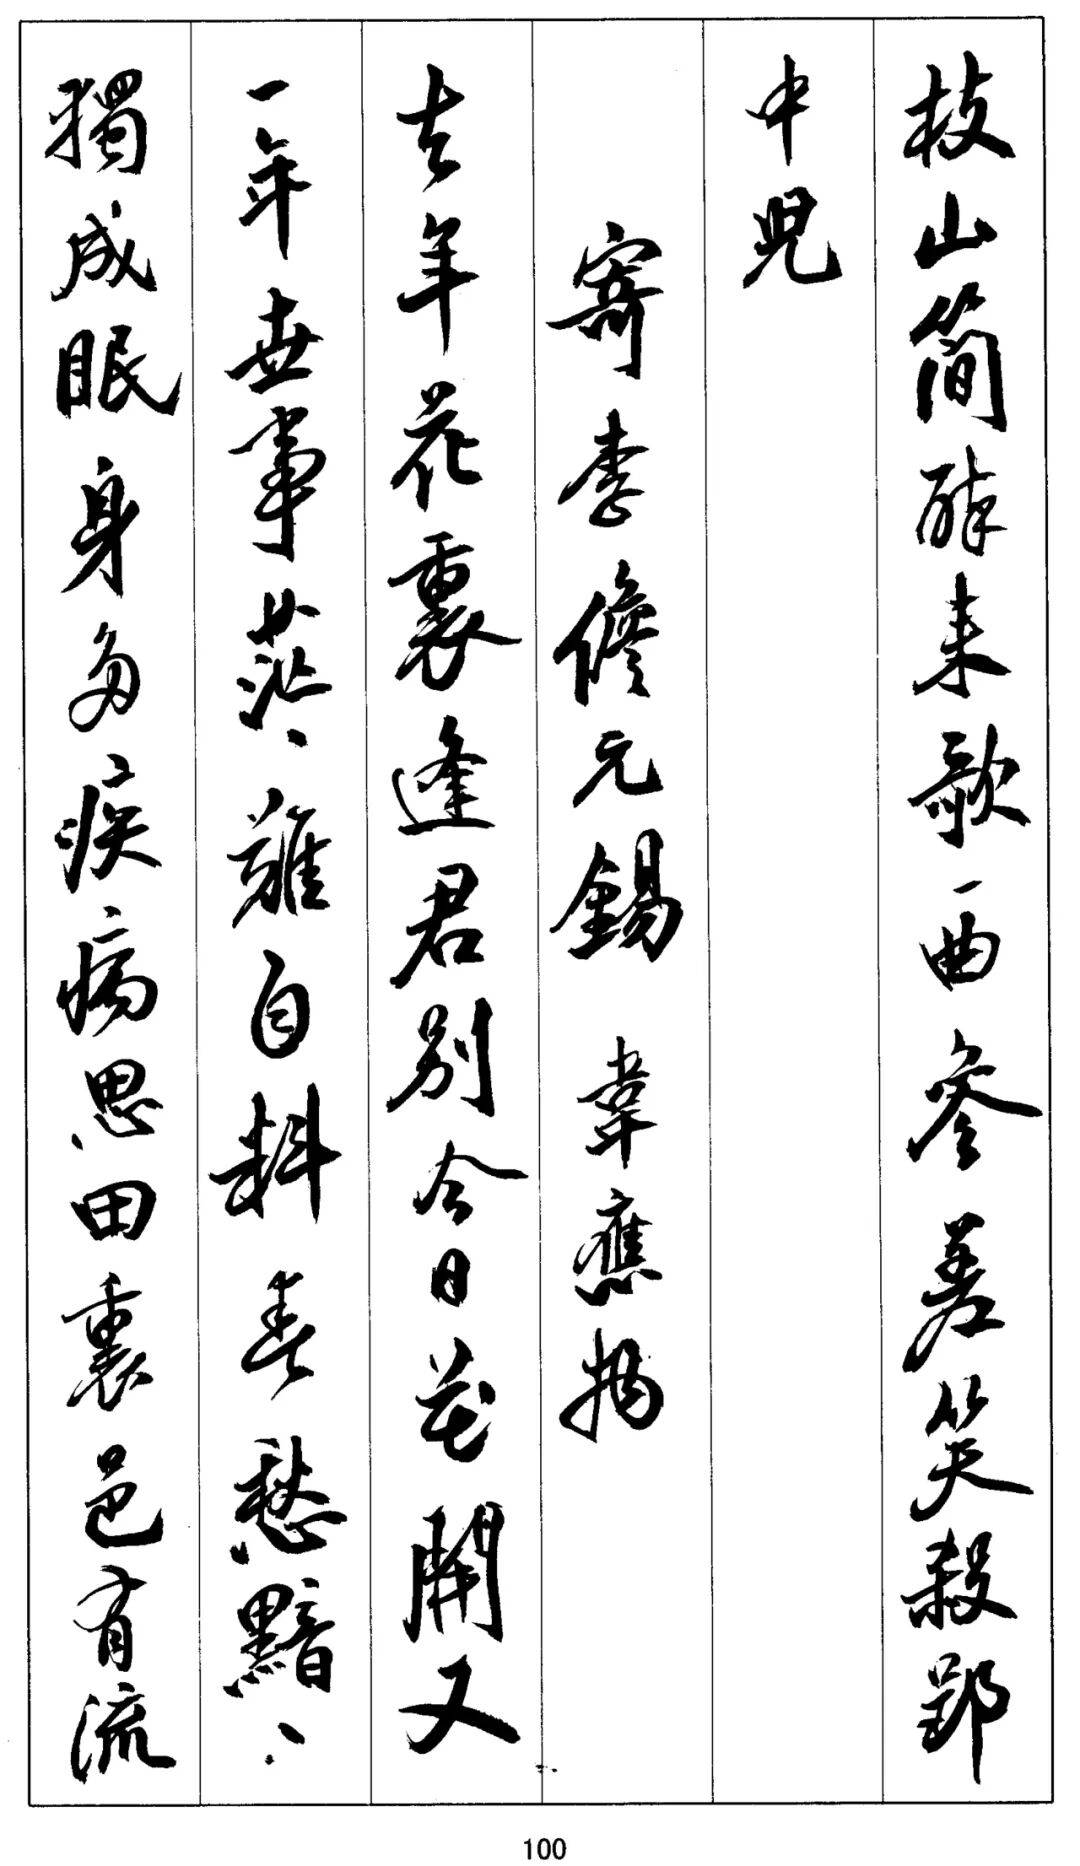 枝山簡醉來歌一曲參差笑殺郢
中兒
寄李儋元錫 韋應物
去年花裏逢君別今日花開又
一年世事茫々難自料春愁黯々
獨成眠身多疾病思田裏邑有流
100